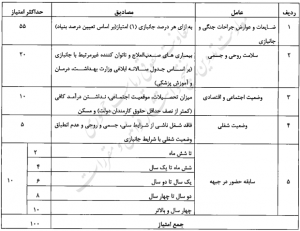 ردیف عامل مصادیق حداکثر امتیاز
۱ ضایعات و عوارض جراحات جنگی و جانبازی به ازای هر درصد جانبازی (۱) امتیاز (بر اساس تعیین درصد بنیاد) ۵۵
۲ سلامت روحی و جسمی بیماری های صعب العلاج و ناتوان کننده غیرمرتبط با جانبازی
(بر اساس جدول سالانه ابلاغی وزارت بهداشت، درمان
و آموزش پزشکی) ۲۰
۳ وضعیت اجتماعی و اقتصادی میزان تحصیلات، موقعیت اجتماعی، نداشتن درآمد کافی
(کمتر از نصف حداقل حقوق کارمندان دولت) و مسکن ۱۰
۴ وضعیت شغلی فاقد شغل ناشی از شرایط سنی، جسمی و روحی و عدم انطباق
شغلی با شرایط جانبازی ۵
۵ سابقه حضور در جبهه ۱۰
تا شش ماه ۲
شش ماه تا یک سال ۴
یک سال تا دو سال ۶
دو سال تا چهار سال ۸
چهار سال و بالاتر ۱۰
جمع امتیاز ۱۰۰